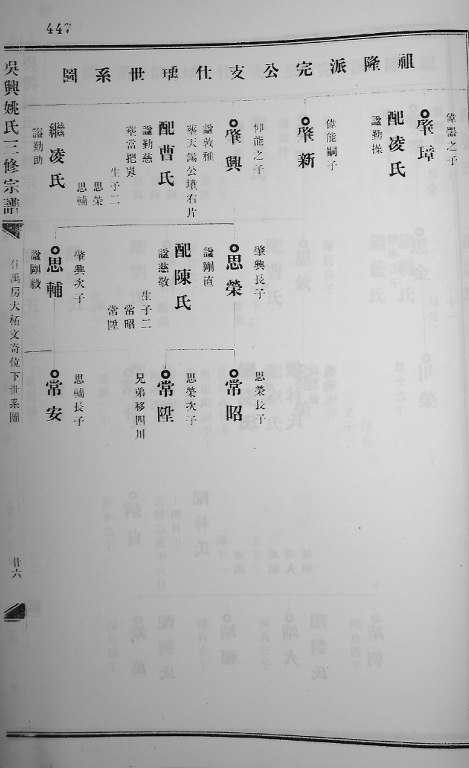 447
祖隆派完公支仕璹世系圖
吳興姚氏三修宗譜
廿六
偉器之子
肇璋
配凌氏
諡勤操
偉能嗣子
肇新
仰能之子
肇興
諡敦雅
葬天錫公墳右片
配曹氏
諡勤慈
生子二
思榮
思輔
繼凌氏
諡勤助
肇興長子
思榮
諡剛直
配陳氏
諡慈敬
生子二
常昭
常陞
肇興次子
思輔
諡剛毅
思榮長子
常昭
思榮次子
常陞
兄弟移四川
思輔長子
常安